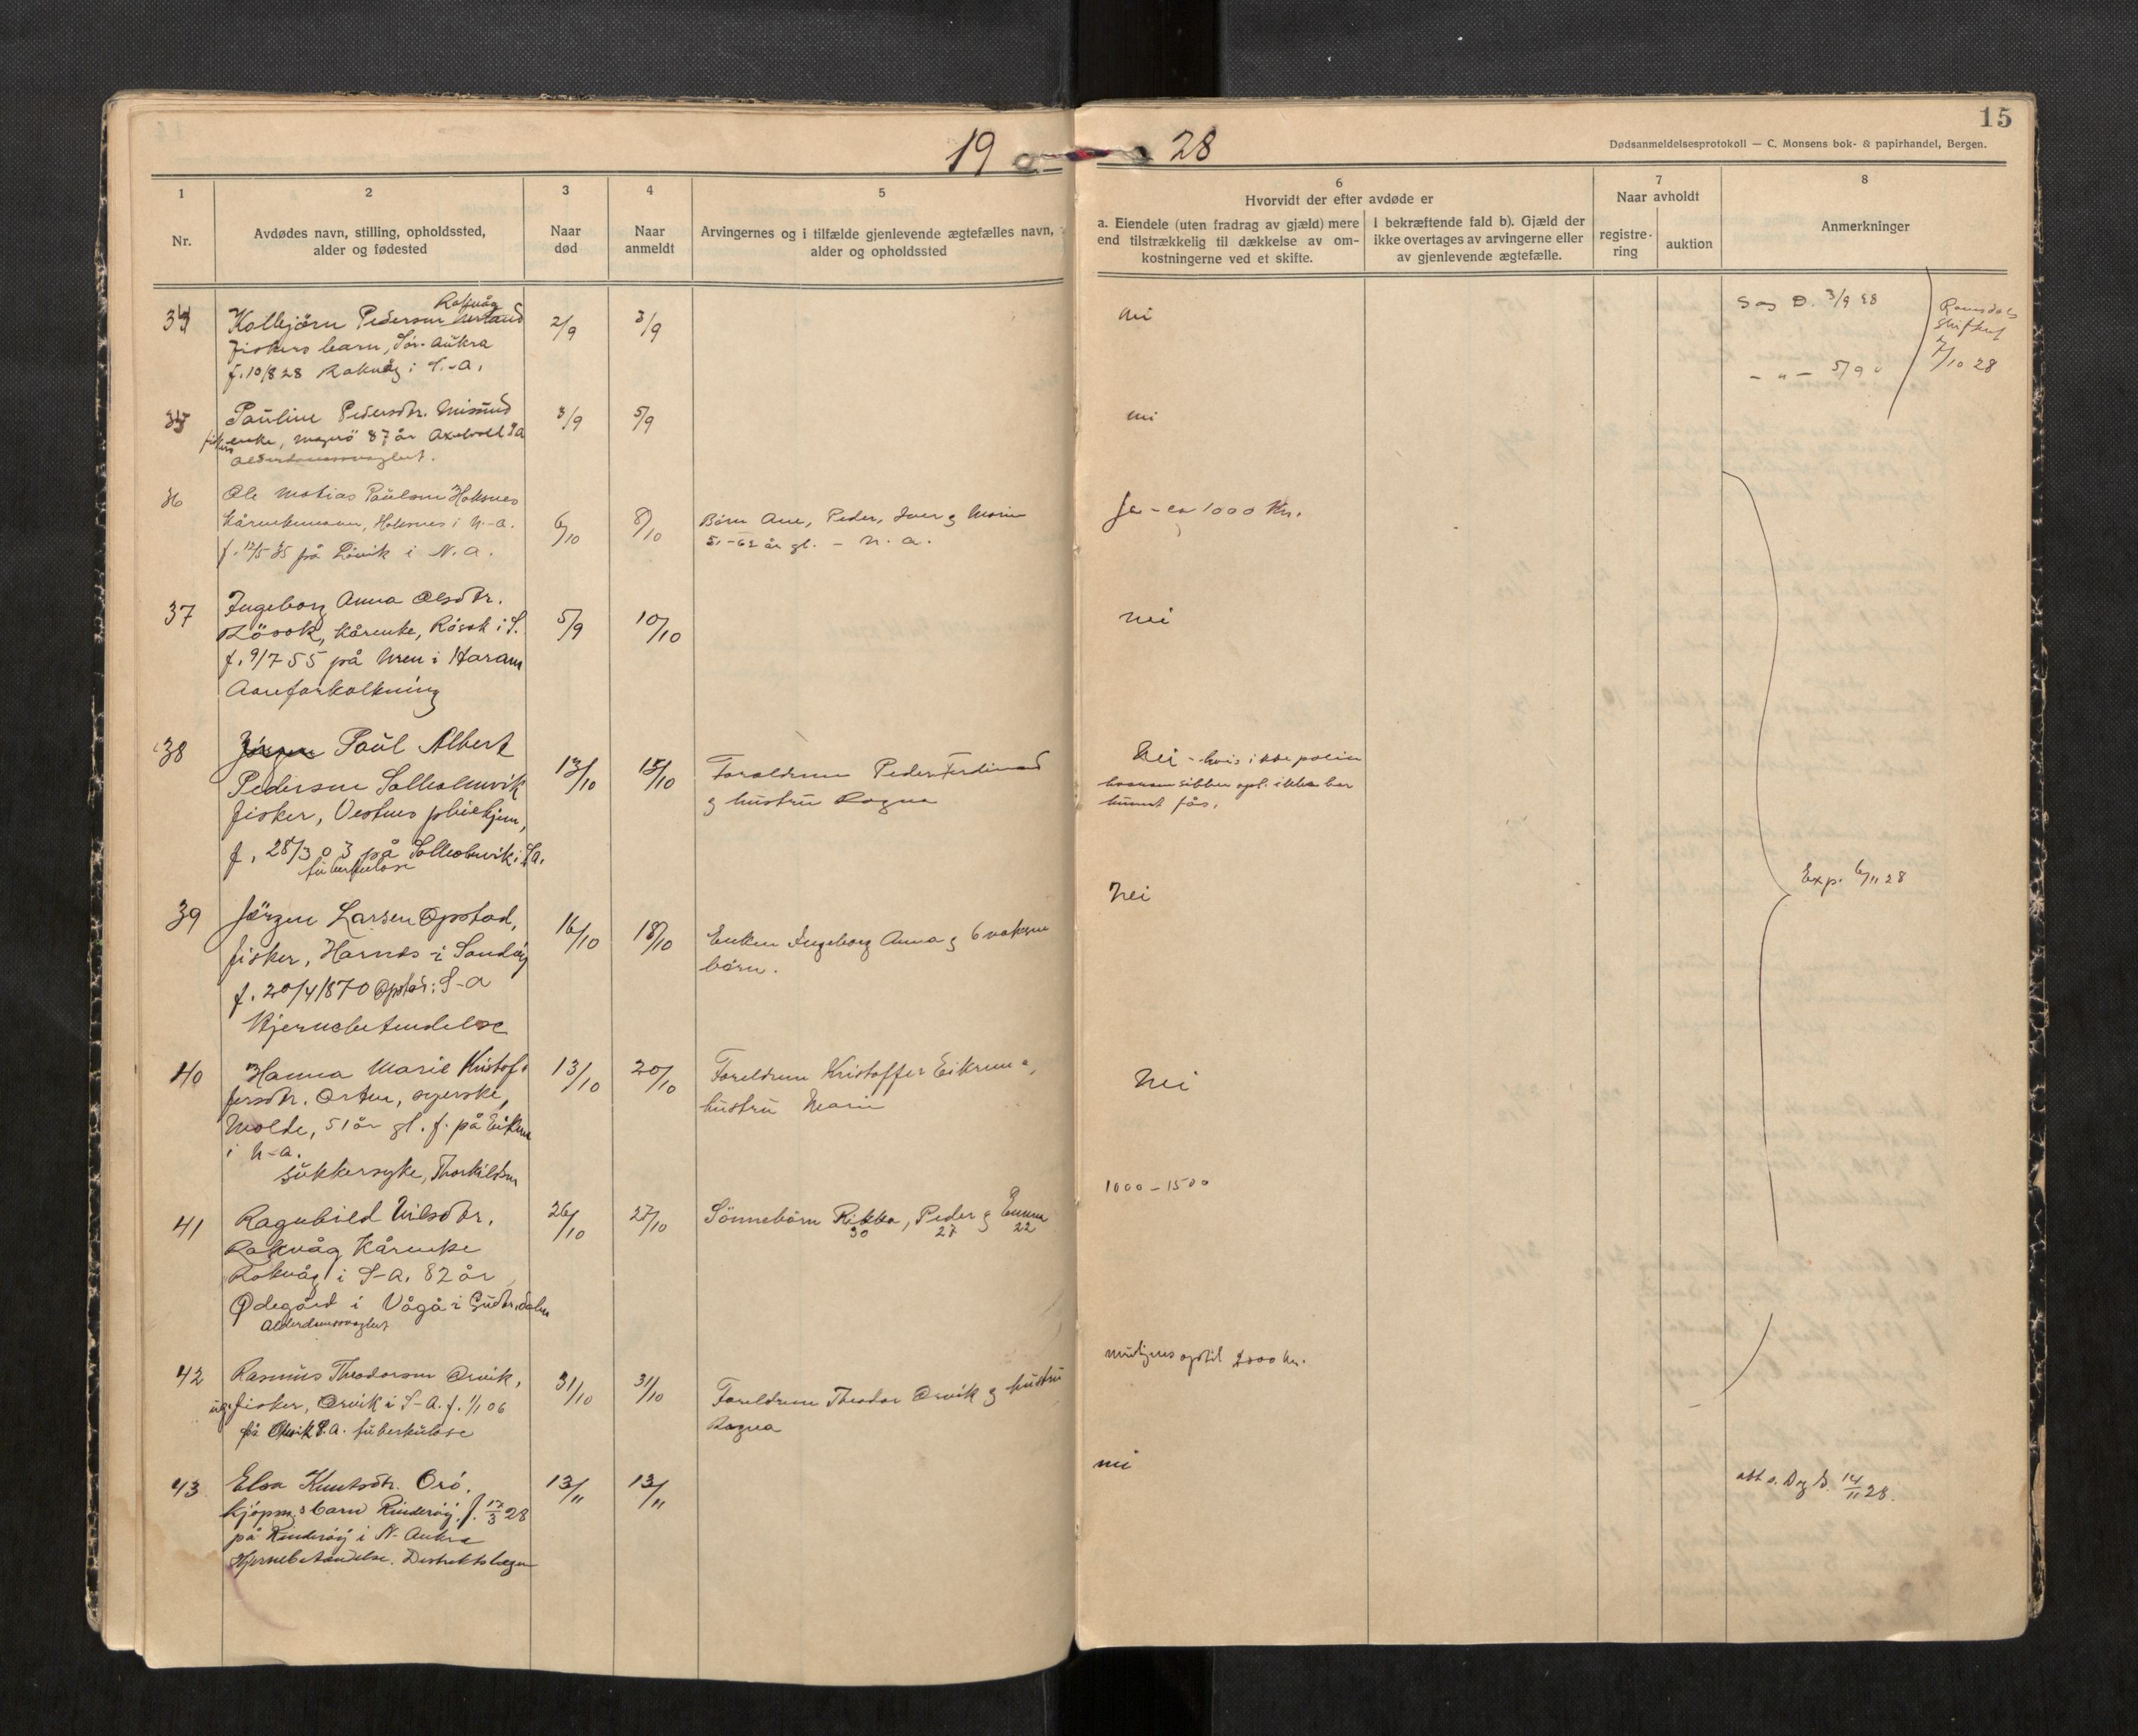 15
19 28
Dødsanmeldelsesprotokoll — C. Monsens bok- & papirhandel, Bergen.
1
Nr.
2
Avdødes navn, stilling, opholdssted,
alder og fødested
3
Naar
død
4
Naar
anmeldt
5
Arvingernes og i tilfælde gjenlevende ægtefælles navn,
alder og opholdssted
6
Hvorvidt der efter avdøde er
a. Eiendele (uten fradrag av gjæld) mere
end tilstrækkelig til dækkelse av om-
kostningerne ved et skifte.
I bekræftende fald b). Gjæld der
ikke overtages av arvingerne eller
av gjenlevende ægtefælle.
7
Naar avholdt
registre-
ring
auktion
8
Anmerkninger
Rakvåg
34 Kolbjörn Pedersen 2/9 3/9 nei D. 3/9 28
fiskers barn, Sör-Aukra
f. 10/8 28 Rakvåg i S.-A.
Romsdals
7/10 28
- " - 5/9 "
35 Pauline Pedersdtr. Misund 3/9 5/9 nei
enke, Magerö 87 år S A
Alderdomssvaghet.
36 Ole Matias Paulsen Hoksnes
Kårenkemann, Hoksnes i N.-A. 6/10 8/10 Börn Ane, Peder, Iver g Marie ja - ca 1000 Kr.
f. 12/5 35 på Lövik i N.A. 51-62 år gl. - N. A.
37 Ingeborg Anna Olsdtr.
Rösok, Kårenke, Rösok i S. 5/9 10/10 nei
f. 9/7 55 på Uren i Haram
Aareforkalkning
38 Jörgen Paul Albert
Pedersen Solholmvik 13/10 15/10 Foreldrene Peder Ferdinand Nei - hvis ikke polise
fisker, Vestnes pleiehjem, g hustru Ragna
få's.
f. 28/3 03 på Solholmvik i S.A.
tuberkulose
39 Jörgen Larsen Opstad, 16/10 18/10 Nei
fisker, Harnes i Sandöy Enken Ingeborg Anna g 6 voksne
f. 20/4 1870 Opstad i S-A börn.
Hjernebetendelse
Exp. 6/11 28
40 Hanna Marie Kristof- 13/10 20/10 Foreldrene Kristoffer Eikrem g Nei
fersdtr. Orten, syerske, hustru Marie
Molde, 51 år gl. f. på Eikrem
i N-A.
Sukkersyke, Thorkildsen
41 Ragnhild Nilsdtr. 26/10 27/10 Sönnebörn Rikka, Peder g Emma 1000 - 1500
Rakvåg Kårenke 30 27 22
Rakvåg i S-A. 82 år
Ödegård i Vågå i Gudbr.dalen
Alderdomssvaghet
42 Rasmus Theodorsen Orvik, 31/10 31/10 muligens optil 2000 kr.
ug. fisker, Orvik i S-A. f. 1/1 06 Foreldrene Theodor Orvik g hustru
på Orvik S.A. tuberkulose Ragna
43 Elsa Knutsdtr. Orö. 13/11 13/11 nei 14/11 28.
kjöpm.s barn Rinderöy f. 17/3 28
på Rinderöy i N-Aukra
Hjernebetendelse. Distriktslægen